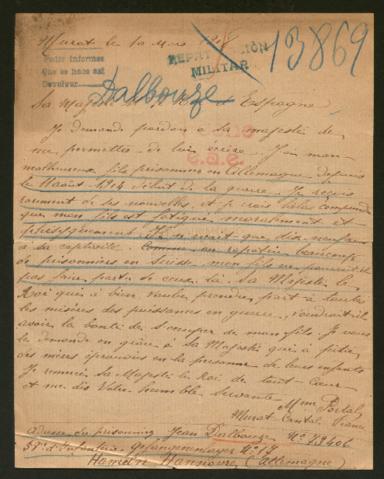 Murat le 10 Mars
REPATRIACION
MILITAR
13869
Pedir informes
Que se hace así
Devolver
Dalbouze
Sa Majesté le Roi Espagne
Je demande pardon à sa majesté de
me permettre de lui écrire. J'ai mon
malheureux fils prisonnier en Allemagne depuis
le Août 1914 début de la guerre. Je reçois
rarement de ses nouvelles et je crois comprendre
que mon fils est fatigué, moralement et
physiquement
à sa captivité. Comme on rapatrie beaucoup
de prisonniers en Suisse, mon fils ne pourrait il
pas faire partie de ceux là. Sa Majesté le
Roi qui a bien voulu prendre part à toutes
les misères des puissances en guerre, voudrait il
avoir la bonté de s'occuper de mon fils. Je vous
le demande en grâce à Sa Majesté qui a pitié
des mères éprouvées en la personne de leurs enfants
Je remercie Sa Majesté le Roi de tout cœur
et me dis Votre humble servante
Mme Portal
Murat Cantal France
adresse du prisonnier Jean Dalbouze
d'Infanterie Gefangenenlager
Hameln Hannovre (Allemagne)